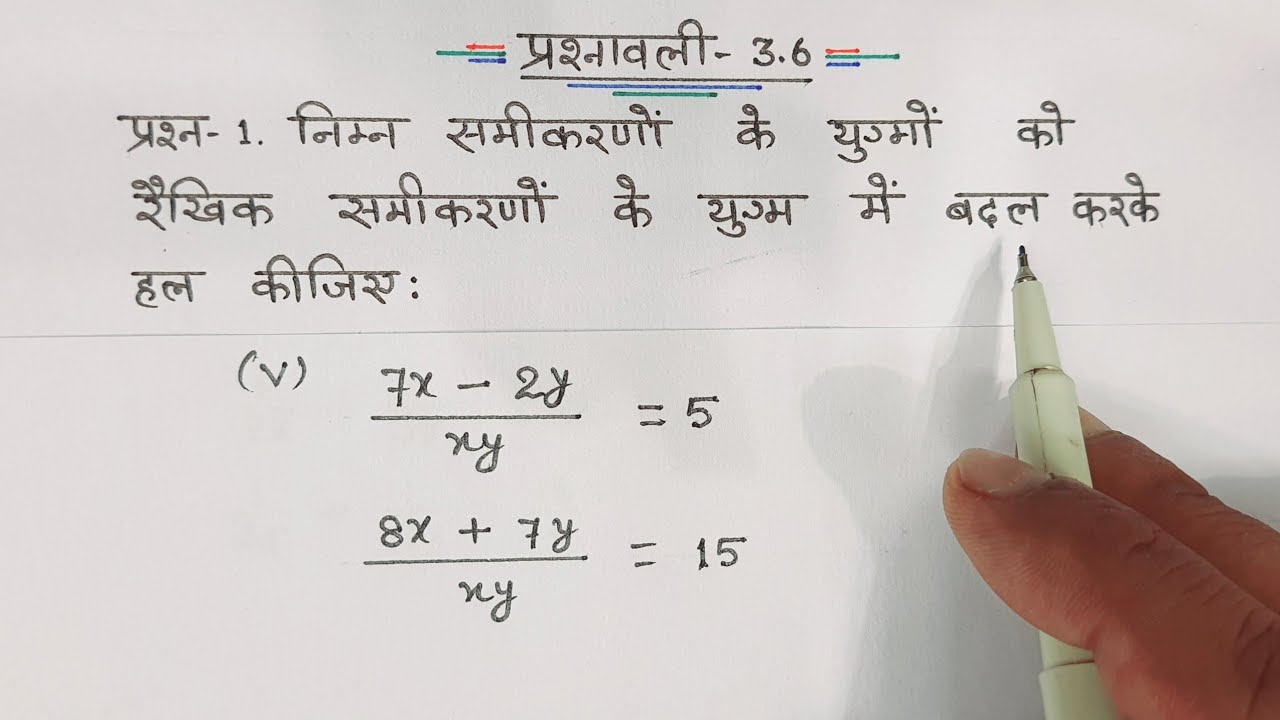 प्रश्नावली - 3.6
प्रश्न- 1. निम्न समीकरणों के युग्मों को
रैखिक समीकरणों के युग्म में बदल करके
हल कीजिए:
(v) 7x - 2y
xy
= 5
8x + 7y
xy
= 15